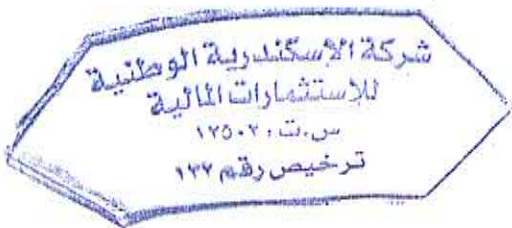 شركة الإسكندرية الوطنية
للاستثمارات المالية
س.ت: ١٢٥٠٢٠
ترخيص رقم ١٢٢